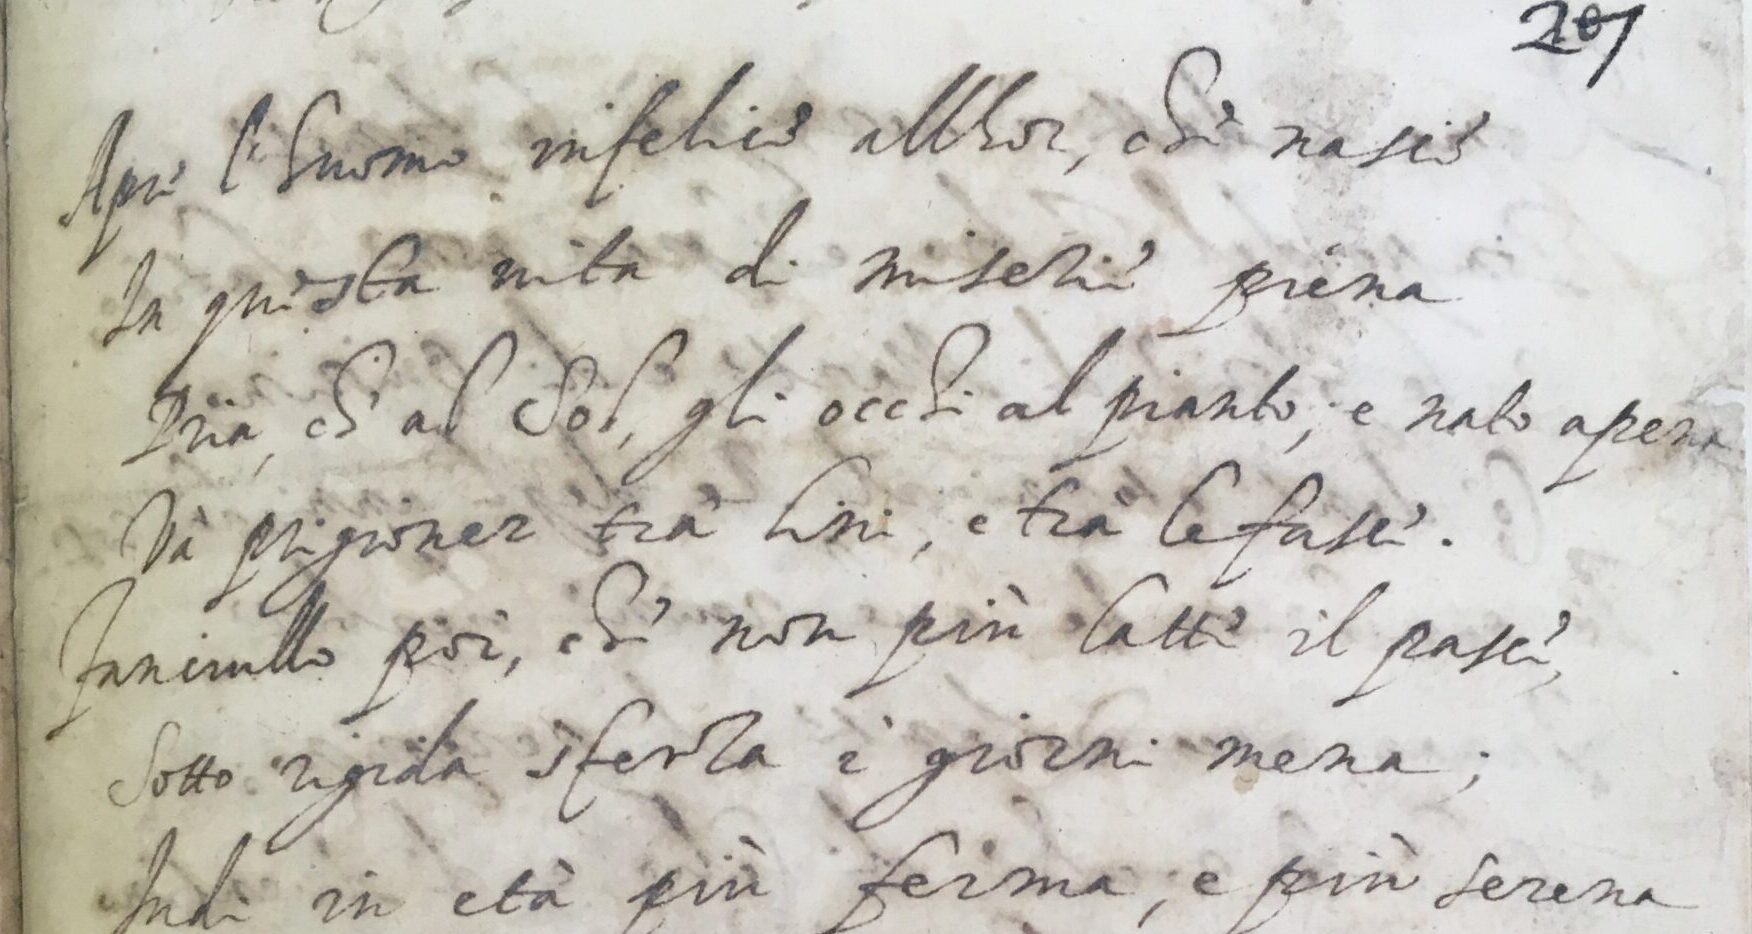 207
Apre l'huomo infelice allhor, che nasce
In questa uita di miserie piena
Pria, ch'al Sol, gli occhi al pianto; e nato apena
Và prigioner trà lini, e trà le fasce.
Fanciullo poi, che non più latte il pasce,
Sotto rigida sferza i giorni mena;
Indi in età più ferma, e più serena